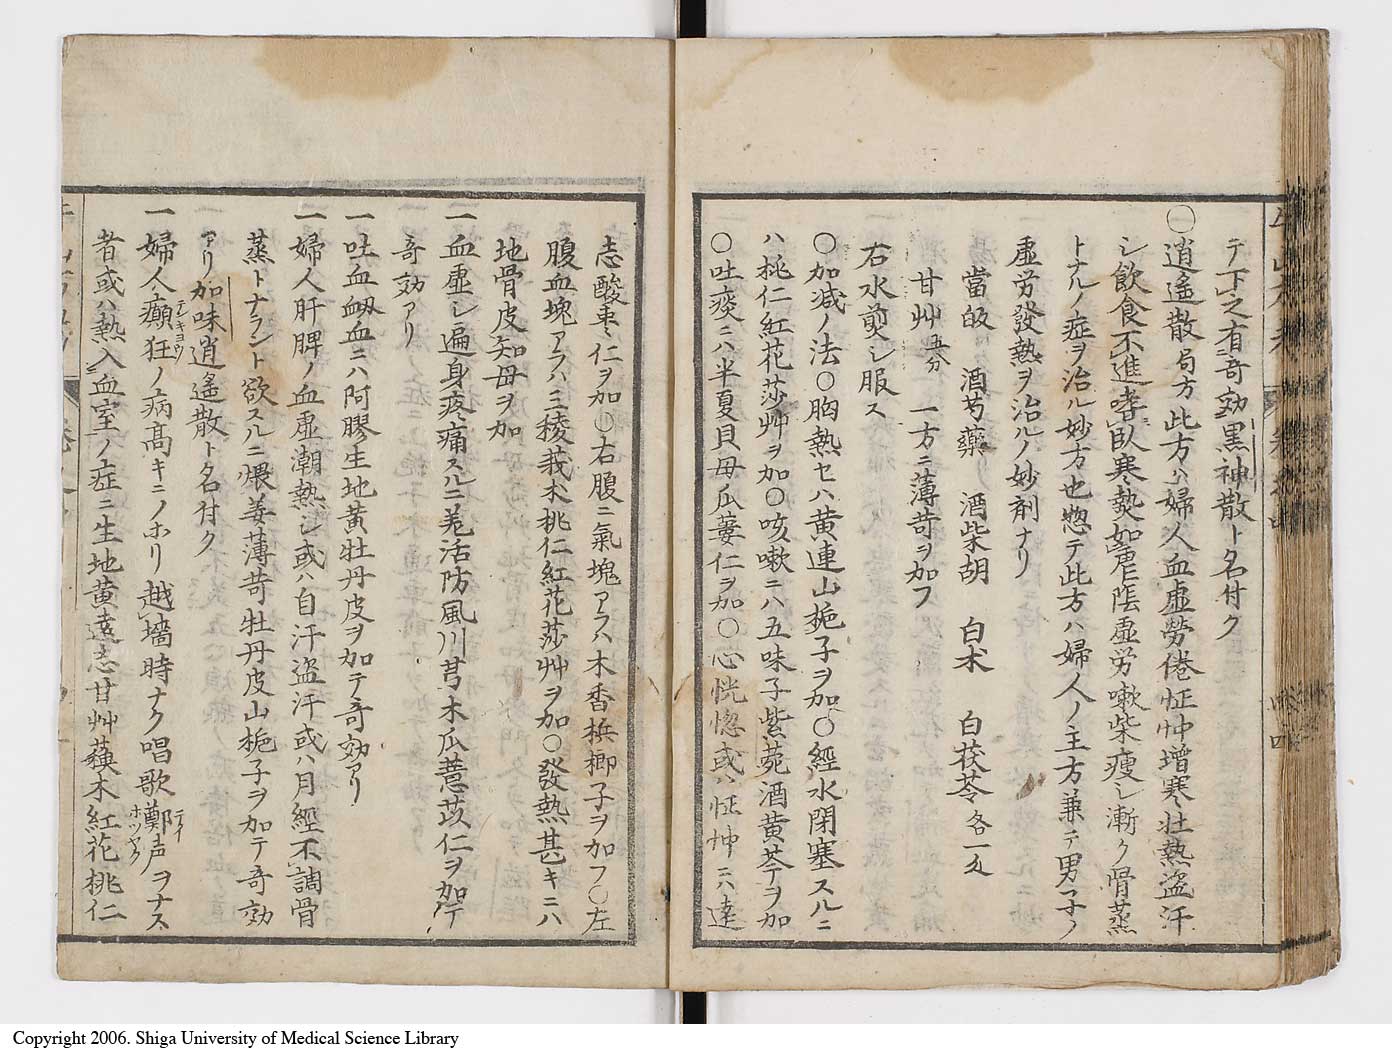 テ下之有奇効黒神散ト名付ク
㊀逍遙散局方此方ハ婦人血虚勞倦怔忡增寒壮熱盗汗
シ飮食不進嗜臥寒熱如瘧陰虚労嗽柴瘦シ漸ク骨蒸
トナルノ症ヲ治ル妙方也惣テ此方ハ婦人ノ主方兼テ男子ノ
虚労發熱ヲ治ルノ妙剤ナリ
當皈 酒芍藥 酒柴胡 白朮 白茯苓各一匁
甘艸五分 一方ニ薄苛ヲ加フ
右水煎シ服ス
○加减ノ法○胸熱セハ黄連山梔子ヲ加○經水閉塞スルニ
ハ桃仁紅花莎艸ヲ加○咳嗽ニハ五味子紫菀酒黄芩ヲ加
○吐痰ニハ半夏貝母瓜蔞仁ヲ加○心恍惚或ハ怔忡ニハ遠
志酸棗仁ヲ加○右腹ニ氣塊アラハ木香梹榔子ヲ加フ○左
腹血塊アラハ三稜莪朮桃仁紅花莎艸ヲ加○發熱甚キニハ
地骨皮知母ヲ加
一血虚シ遍身疼痛スルニ羌活防風川芎木瓜薏苡仁ヲ加テ
奇効アリ
一吐血衂血ニハ阿膠生地黄牡丹皮ヲ加テ奇効アリ
一婦人肝脾ノ血虚潮熱シ或ハ自汗盗汗或ハ月經不調骨
蒸トナラント欲スルニ煨姜薄苛牡丹皮山梔子ヲ加テ奇効
アリ加味逍遙散ト名付ク
一婦人癲狂ノ病髙キニノホリ越墻時ナク唱歌鄭声ヲナス
者或ハ熱入血室ノ症ニ生地黄遠志甘艸蘓木紅花桃仁
Copyright 2006. Shiga University of Medical Science Library